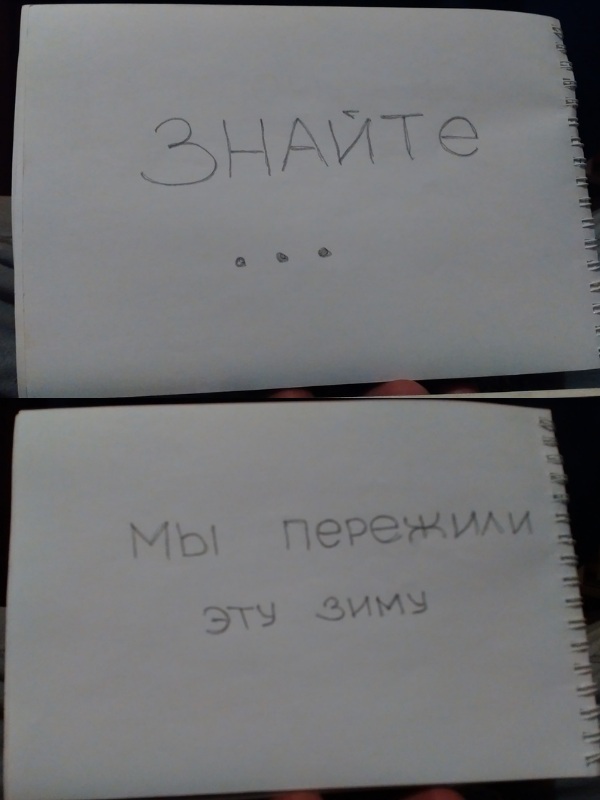 ЗНАЙТе
...
Мы пережили
эту зиму